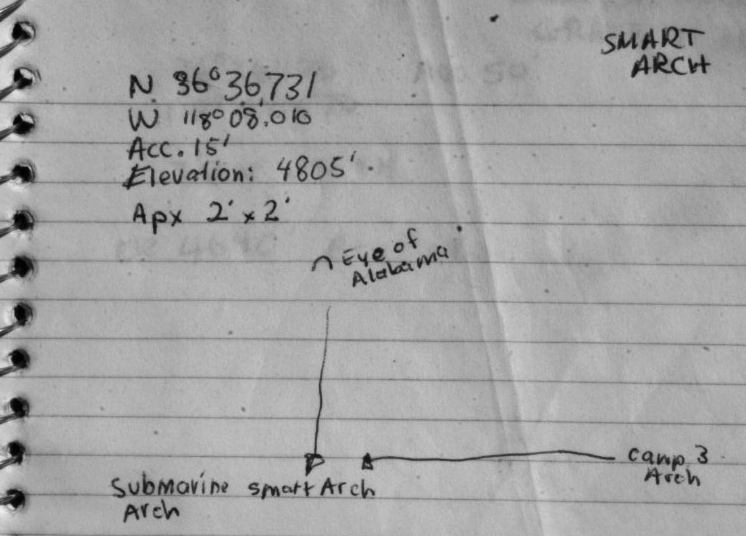 SMART
ARCH
N 36°36,731
W 118° 08.010
Acc. 15'
Elevation: 4805'
Apx 2' x 2'
Eye of
Alabama
Camp 3
Arch
Submarine smart Arch
Arch